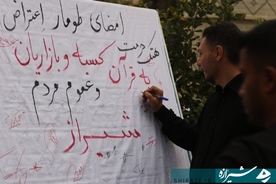 امضای طومار اعتراض
هتک حرمت
به قرآن کسبه و بازاریان
و عموم مردم
شیراز
شیرازه